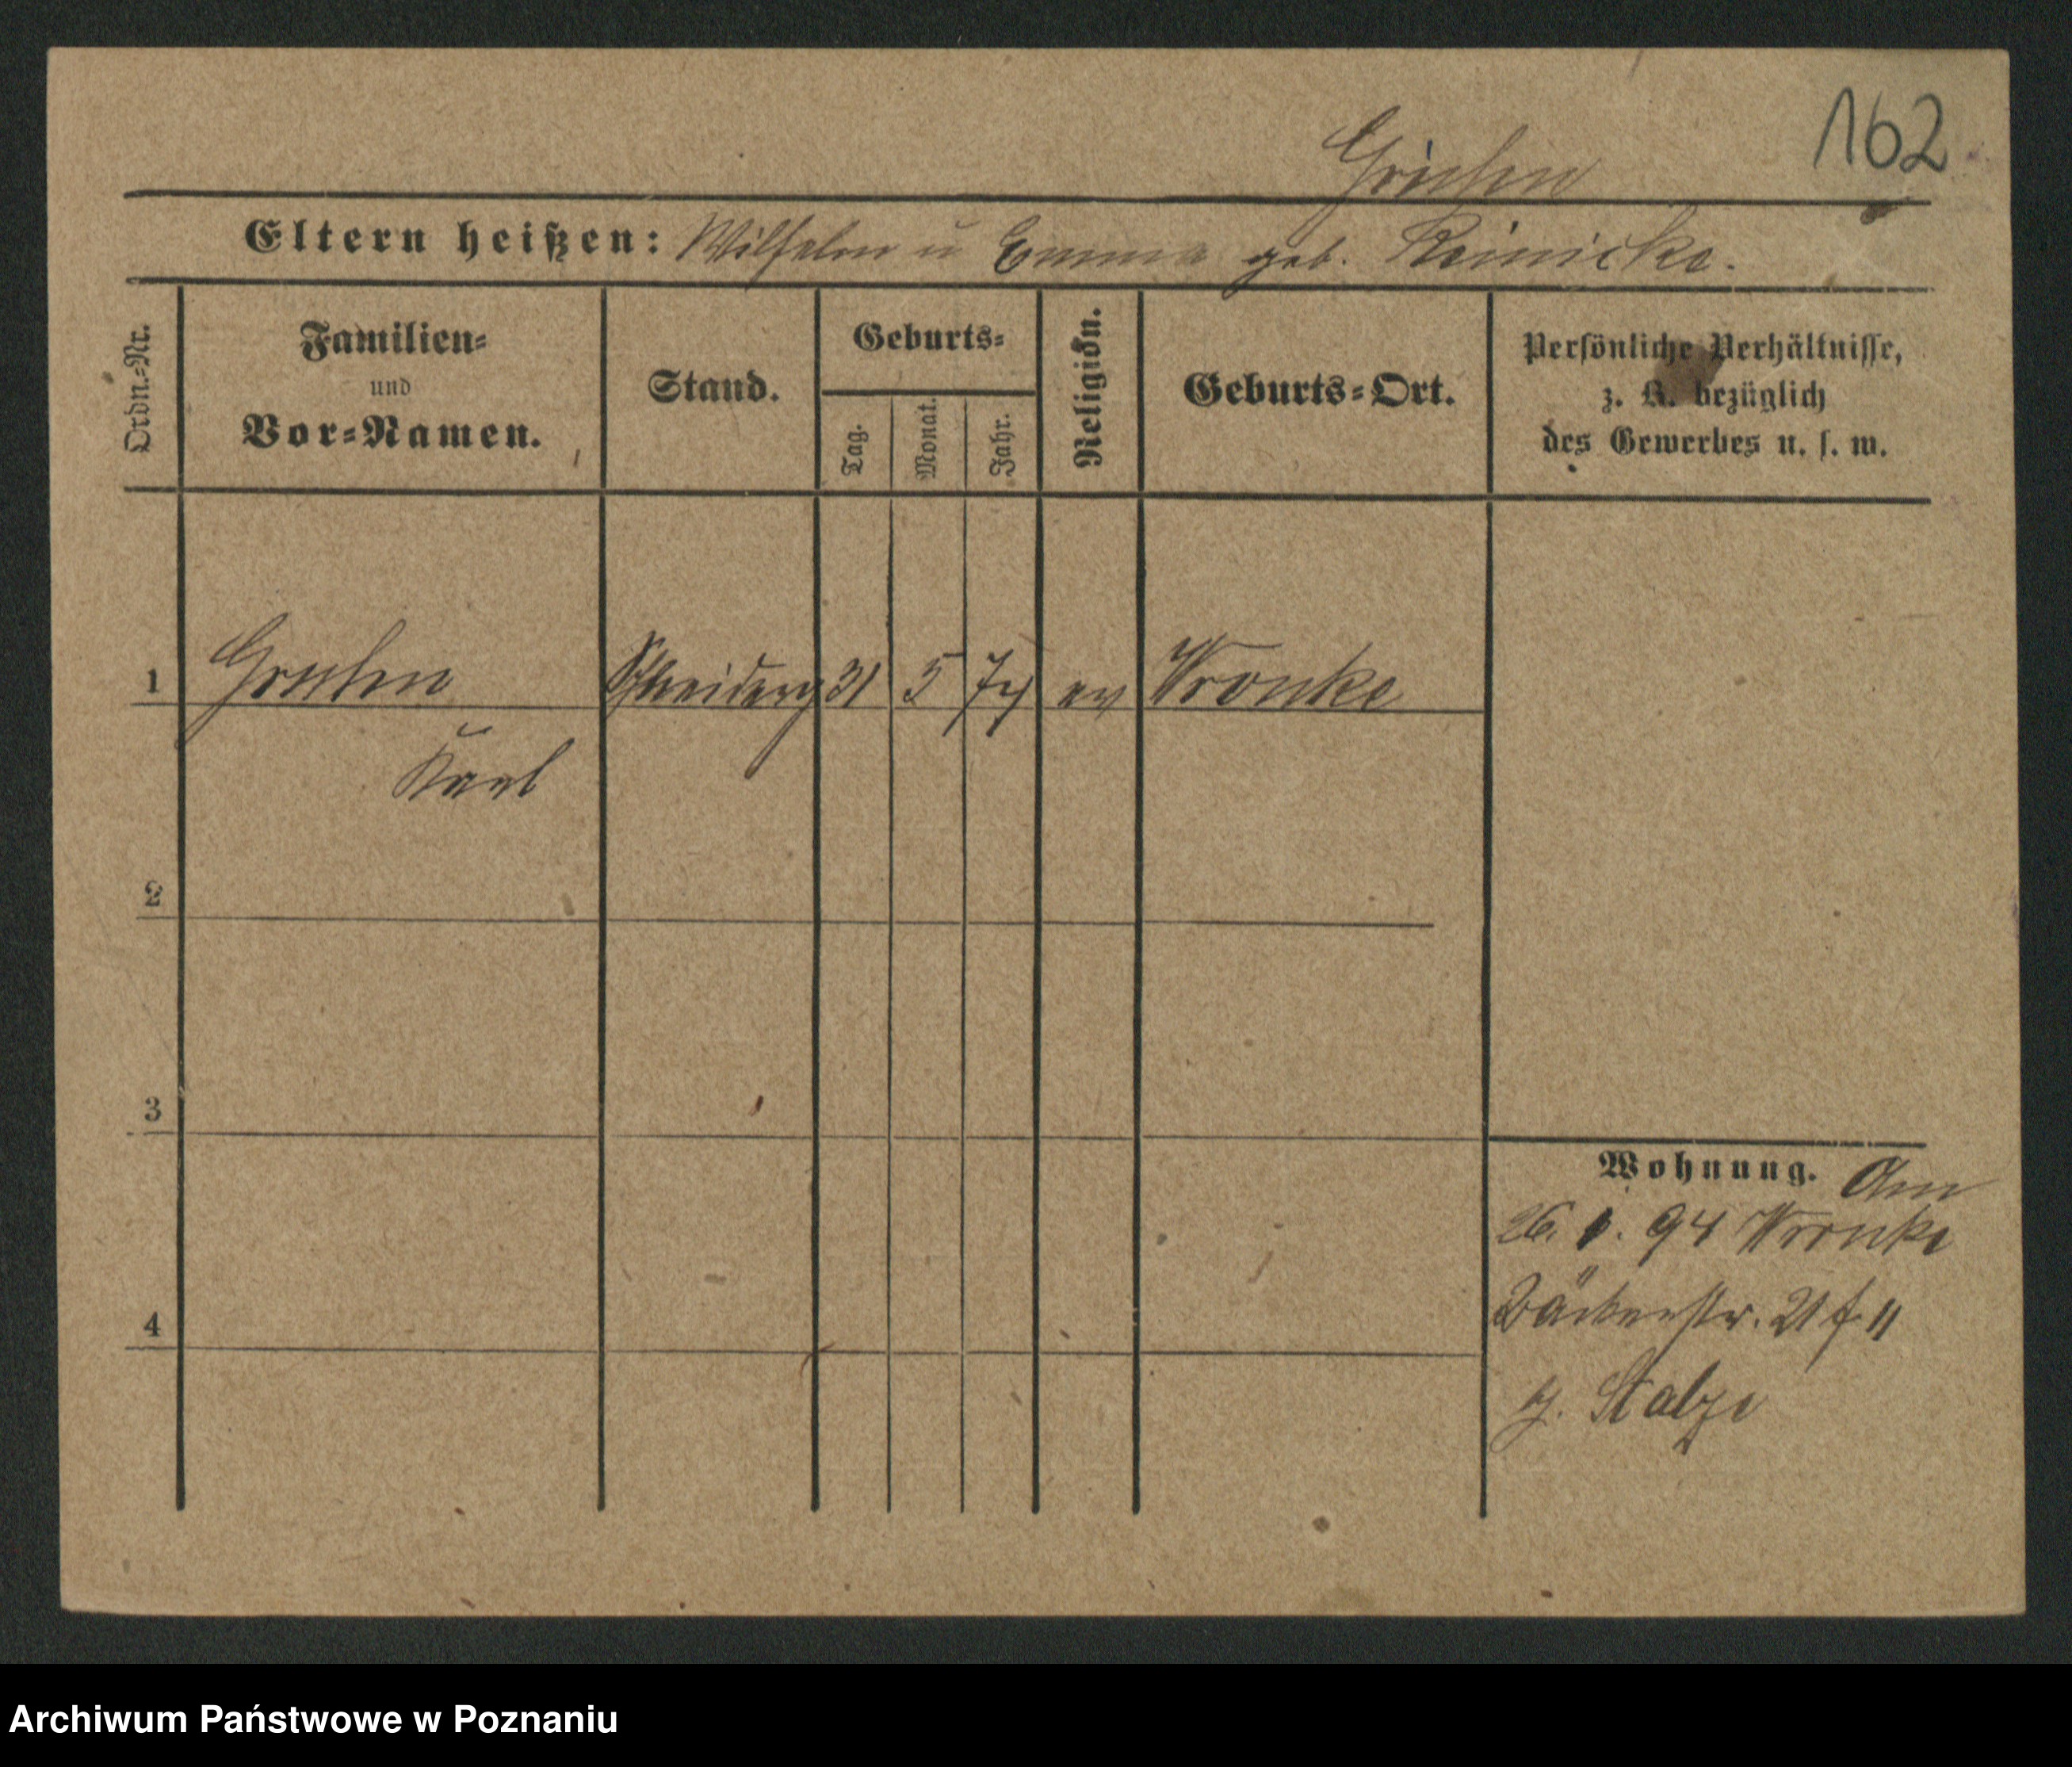 162
Eltern heißen: Wilhelm u Emma geb. Reinicke.
Ordn.-Nr.
Familien-
und
Vor-Namen.
Stand.
Geburts-
Tag.
Monat.
Jahr.
Religion.
Geburts-Ort.
Persönliche Verhältnisse,
z. B. bezüglich
des Gewerbes u. s. w.
1 31 5 74 ev Wronke
Karl
2
3
4
Wohnung. Am
26. 1. 94 Wronke
Bäckerstr. 21